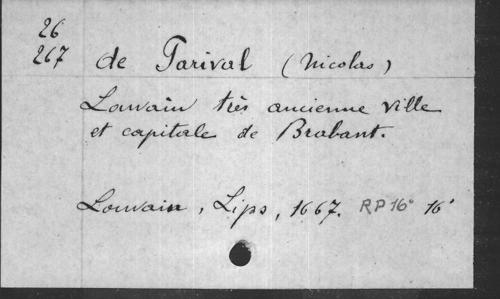 26
267 de Parival (Nicolas)
Louvain très ancienne ville
et capitale de Brabant.
Louvain, Lips, 1667. RP 16° 16°